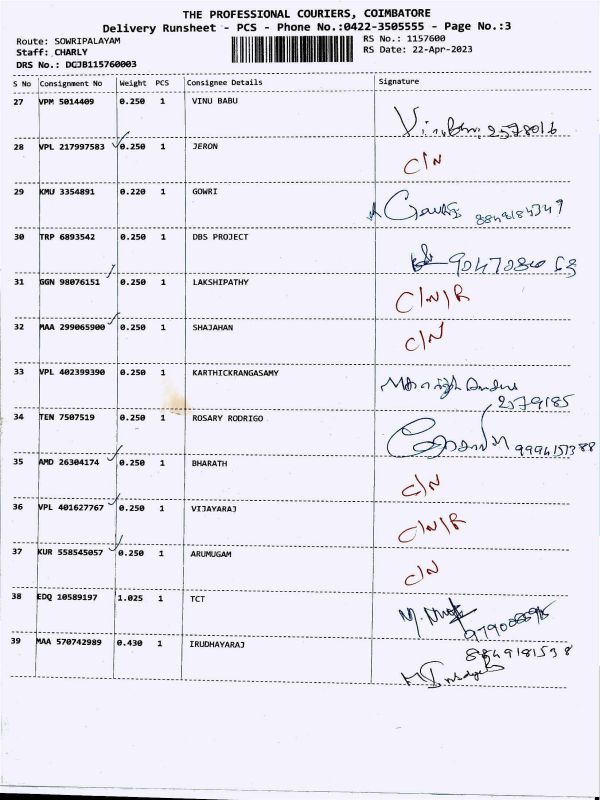 THE PROFESSIONAL COURIERS, COIMBATORE
Delivery Runsheet - PCS - Phone No.:0422-3505555 - Page No.:3
Route: SOWRIPALAYAM RS No.: 1157600
Staff: CHARLY RS Date: 22-Apr-2023
DRS No.: DGJB115760003
S No Consignment No Weight PCS Consignee Details Signature
27 VPM 5014409 0.250 1 VINU BABU
2578016
28 VPL 217997583 0.250 1 JERON
C/N
29 KMU 3354891 0.220 1 GOWRI
30 TRP 6893542 0.250 1 DBS PROJECT
31 GGN 98076151 0.250 1 LAKSHIPATHY
C/N/R
32 MAA 299065900 0.250 1 SHAJAHAN
C/N
33 VPL 402399390 0.250 1 KARTHICKRANGASAMY
2579185
34 TEN 7507519 0.250 1 ROSARY RODRIGO
9994157388
35 AMD 26304174 0.250 1 BHARATH
C/N
36 VPL 401627767 0.250 1 VIJAYARAJ
C/N/R
37 KUR 558545057 0.250 1 ARUMUGAM
C/N
38 EDQ 10589197 1.025 1 TCT
39 MAA 570742989 0.430 1 IRUDHAYARAJ
8849181538